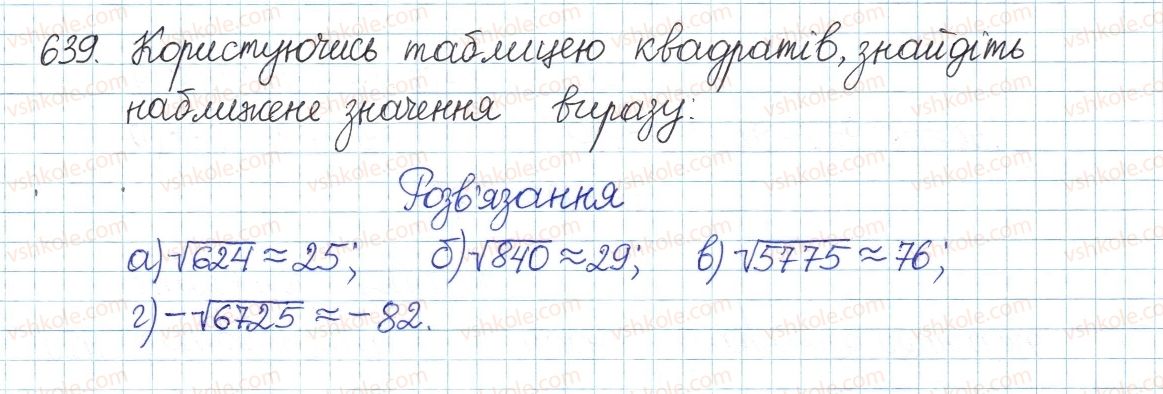 639. Користуючись таблицею квадратів, знайдіть
наближене значення виразу:
Розв'язання
а) √624 ≈ 25; б) √840 ≈ 29; в) √5775 ≈ 76;
г) -√6725 ≈ -82.